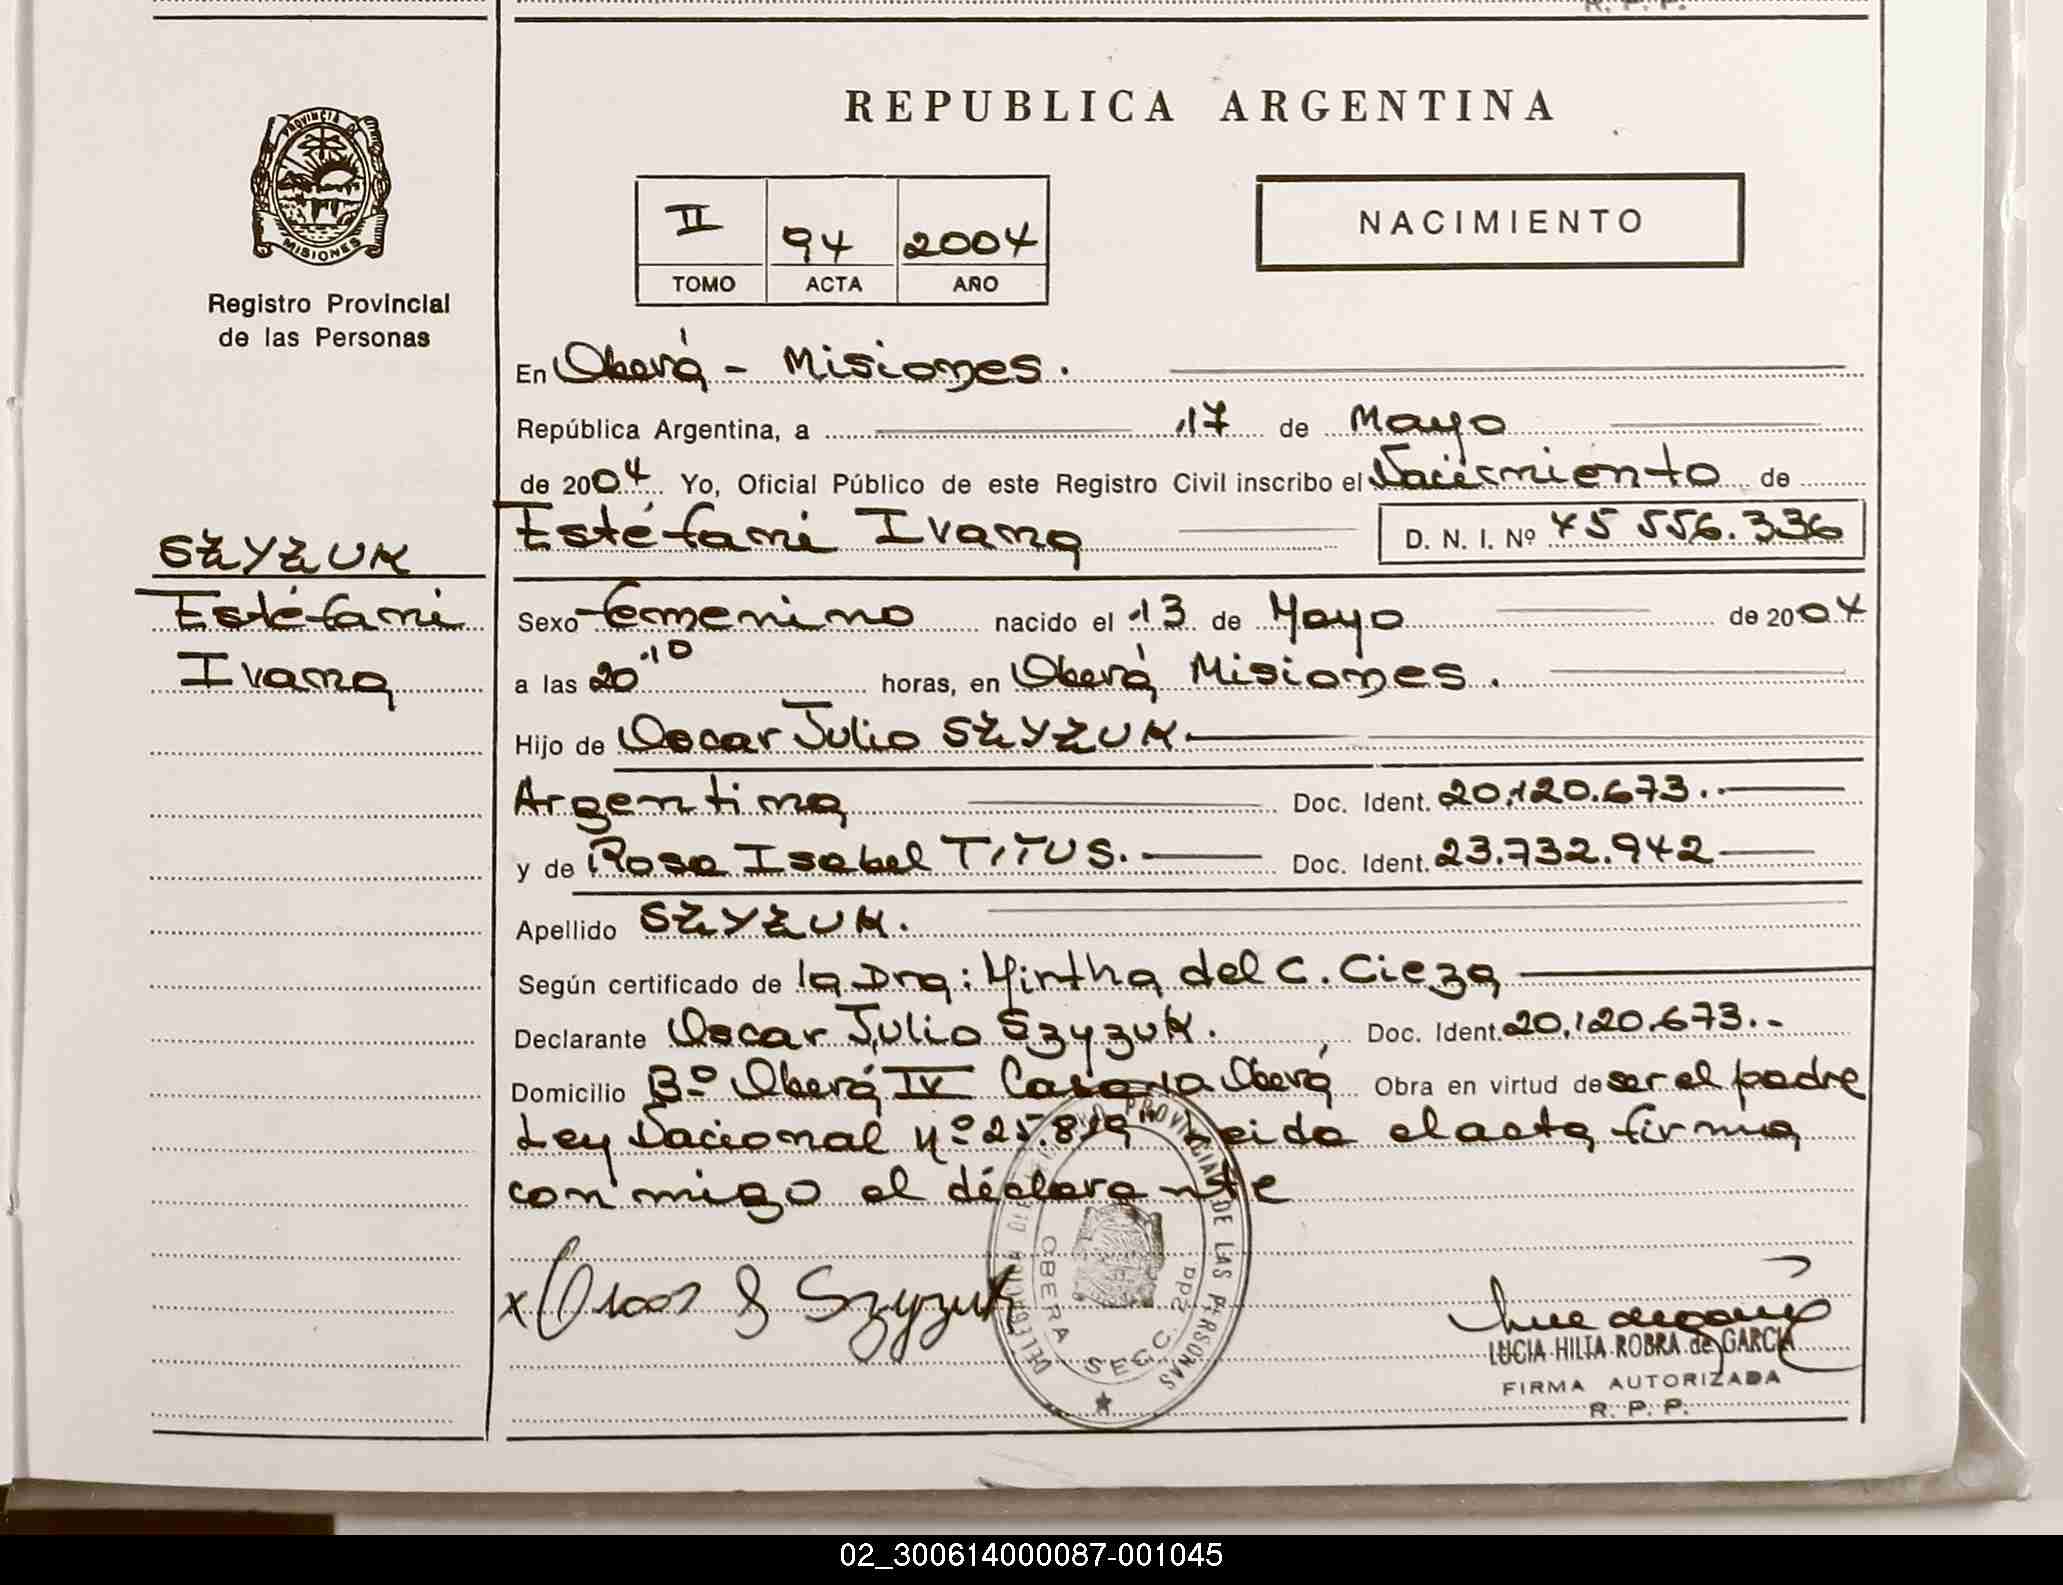 R. P. P.
REPUBLICA ARGENTINA
PROVINCIA DE
MISIONES
Registro Provincial
de las Personas
II 94 2004
TOMO ACTA AÑO
NACIMIENTO
En Oberá - Misiones.
República Argentina, a 17 de Mayo
de 2004 Yo, Oficial Público de este Registro Civil inscribo el Nacimiento de
Estéfani Ivana D. N. I. Nº 45 556.336
SZYZUK
Estéfani
Ivana
Sexo femenino nacido el 13 de Mayo de 2004
a las 20 10 horas, en Oberá Misiones.
Hijo de Oscar Julio SZYZUK.
Argentina Doc. Ident. 20.120.673.
y de Rosa Isabel TITUS. Doc. Ident. 23.732.942
Apellido SZYZUK.
Según certificado de la Dra: Mirtha del C. Cieza
Declarante Oscar Julio Szyzuk. Doc. Ident. 20.120.673.-
Domicilio Bº Oberá IV Oberá Obra en virtud de ser el padre
Ley Nacional Nº 25.819 Leida el acta firma
conmigo el declarante
x Oscar J Szyzuk
DELEGACION DEL REGISTRO PROVINCIAL DE LAS PERSONAS
OBERA SECC. 2da
LUCIA HILIA ROBRA de GARCIA
FIRMA AUTORIZADA
R. P. P.
02_300614000087-001045